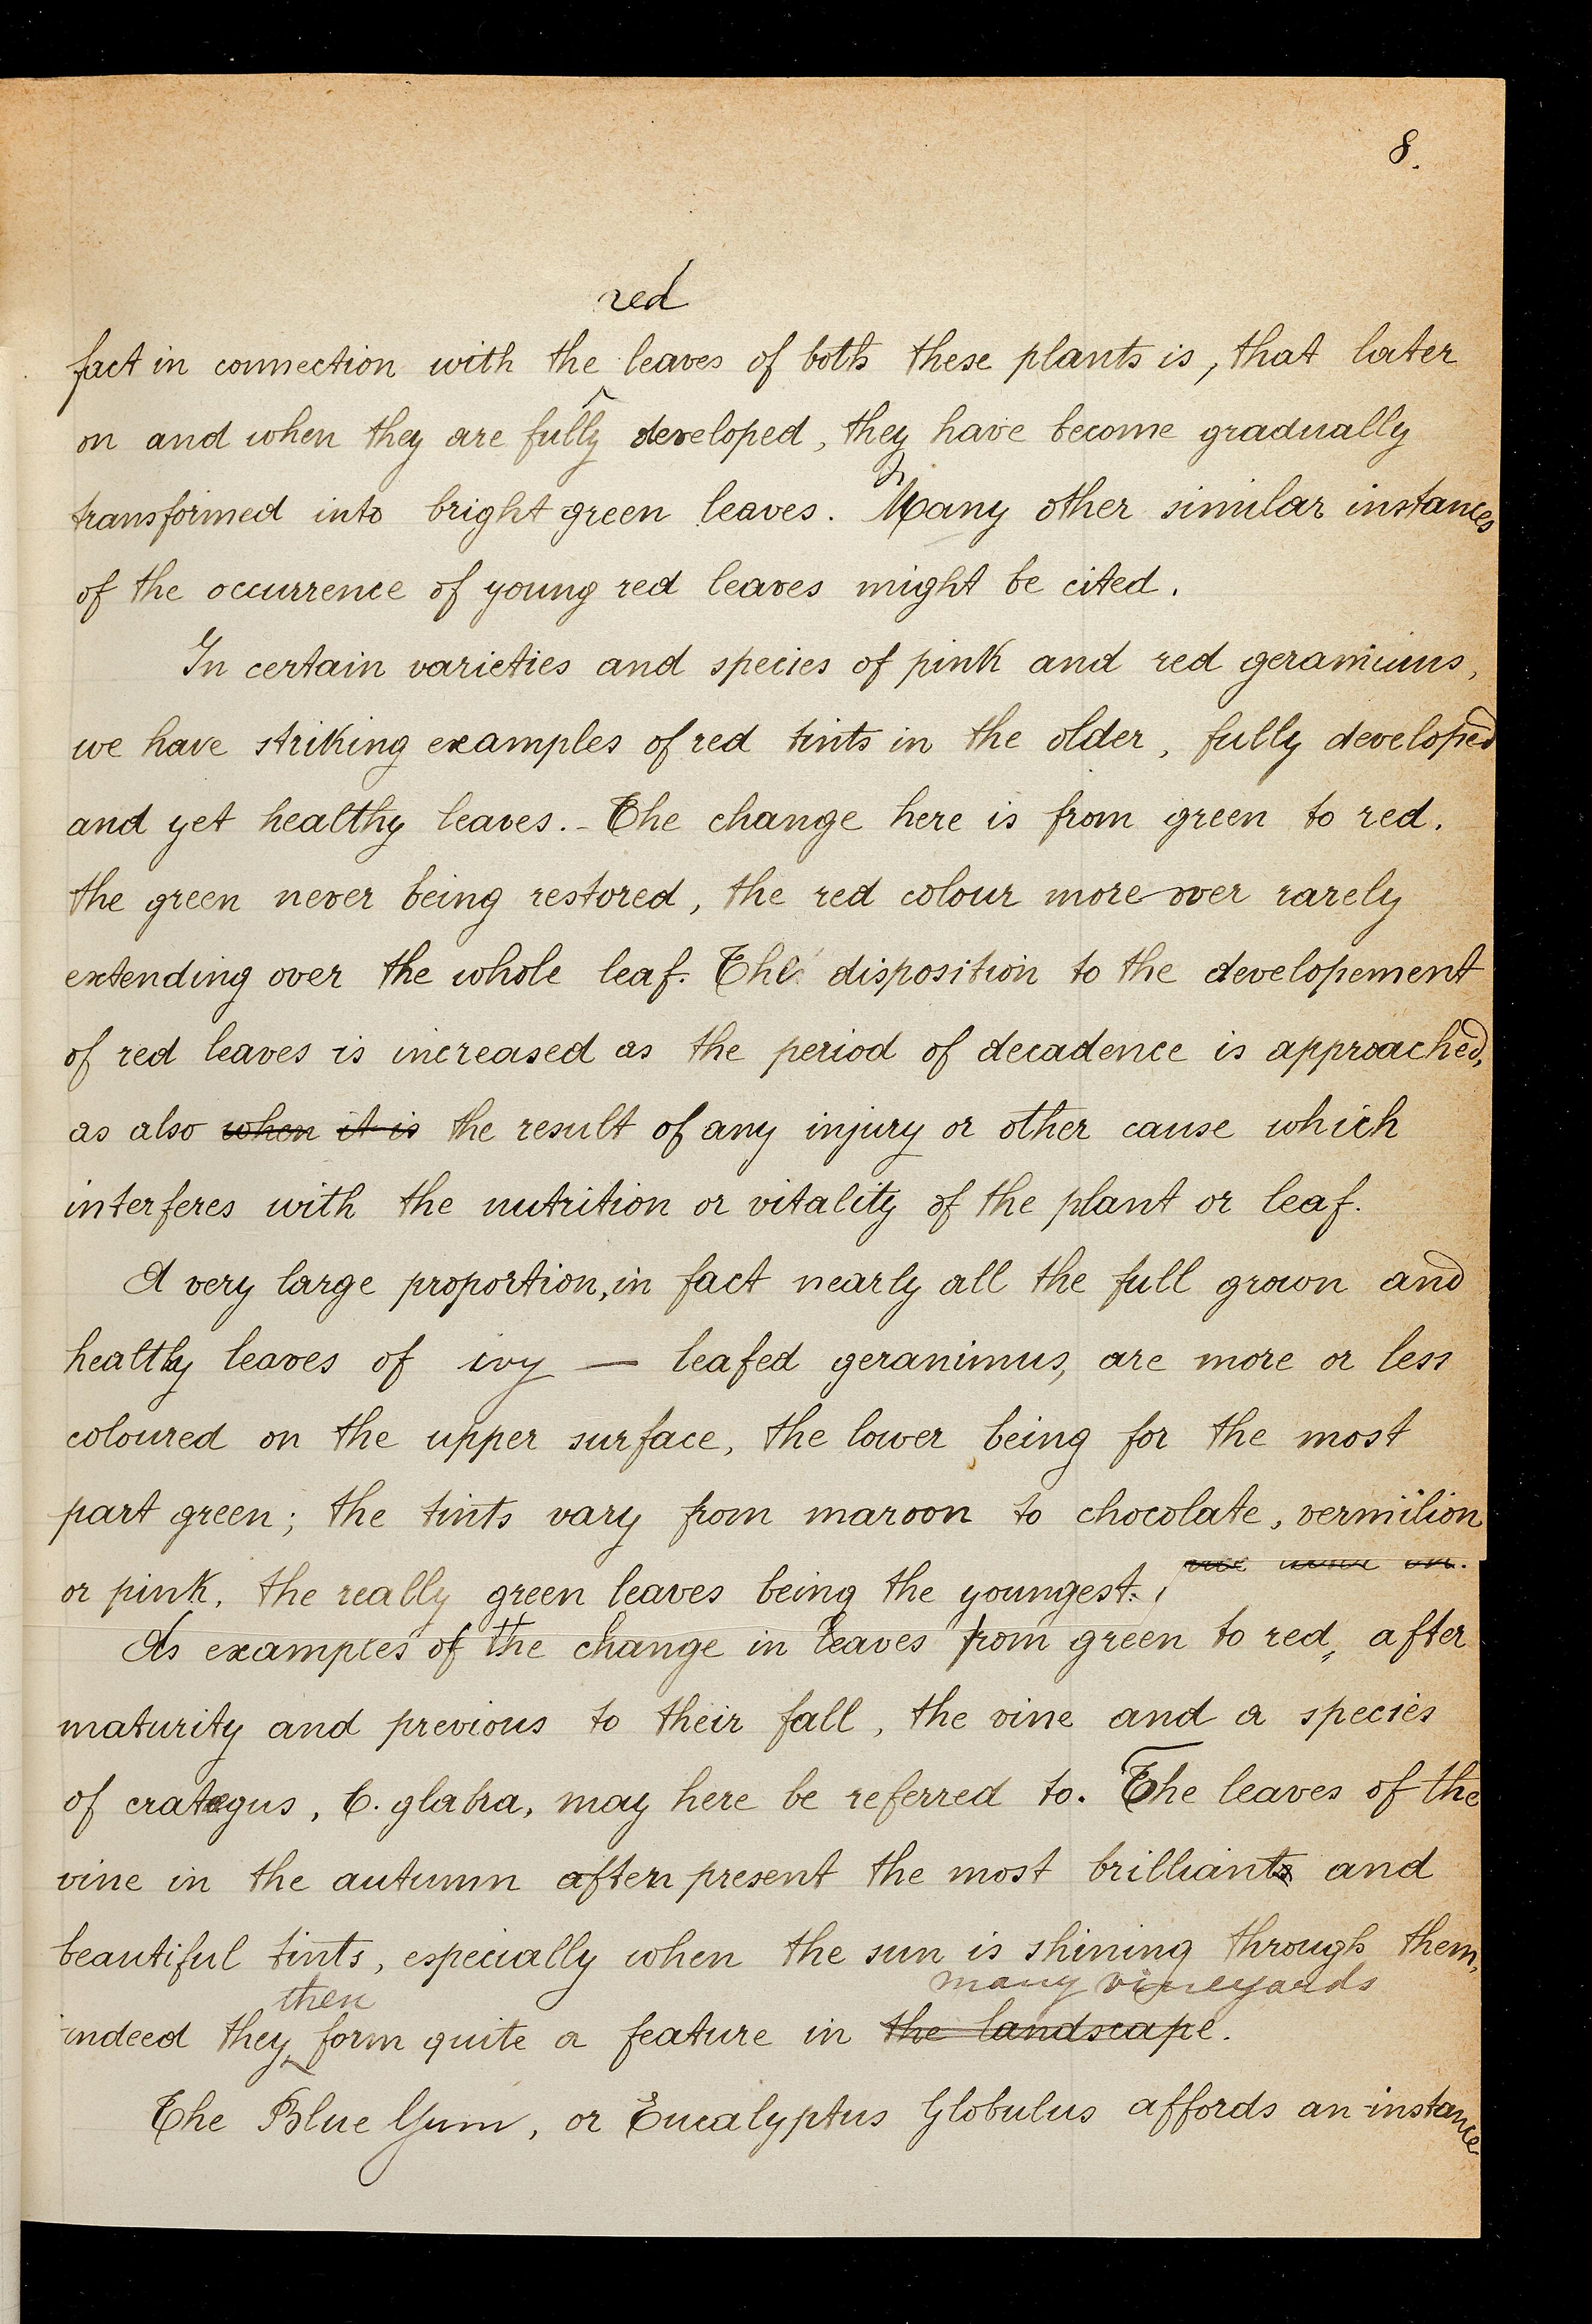 8.
red
fact in connection with the leaves of both these plants is, that later
on and when they are fully developed, they have become gradually
transformed into bright green leaves. Many other similar instances
of the occurrence of young red leaves might be cited.
In certain varieties and species of pink and red geraniums,
we have striking examples of red tints in the older, fully developed
and yet healthy leaves. - The change here is from green to red.
the green never being restored, the red colour more over rarely
extending over the whole leaf. The disposition to the developement
of red leaves is increased as the period of decadence is approached,
as also when it is the result of any injury or other cause which
interferes with the nutrition or vitality of the plant or leaf.
A very large proportion, in fact nearly all the full grown and
healthy leaves of ivy — leafed geranimus, are more or less
coloured on the upper surface, the lower being for the most
part green; the tints vary from maroon to chocolate, vermilion
or pink, the really green leaves being the youngest.
As examples of the change in leaves from green to red, after
maturity and previous to their fall, the vine and a species
of crataegus, C. glabra, may here be referred to. The leaves of the
vine in the autumn often present the most brilliant and
beautiful tints, especially when the sun is shining through them,
then many vineyards
indeed they form quite a feature in the landscape.
The Blue Gum, or Eucalyptus Globulus affords an instance